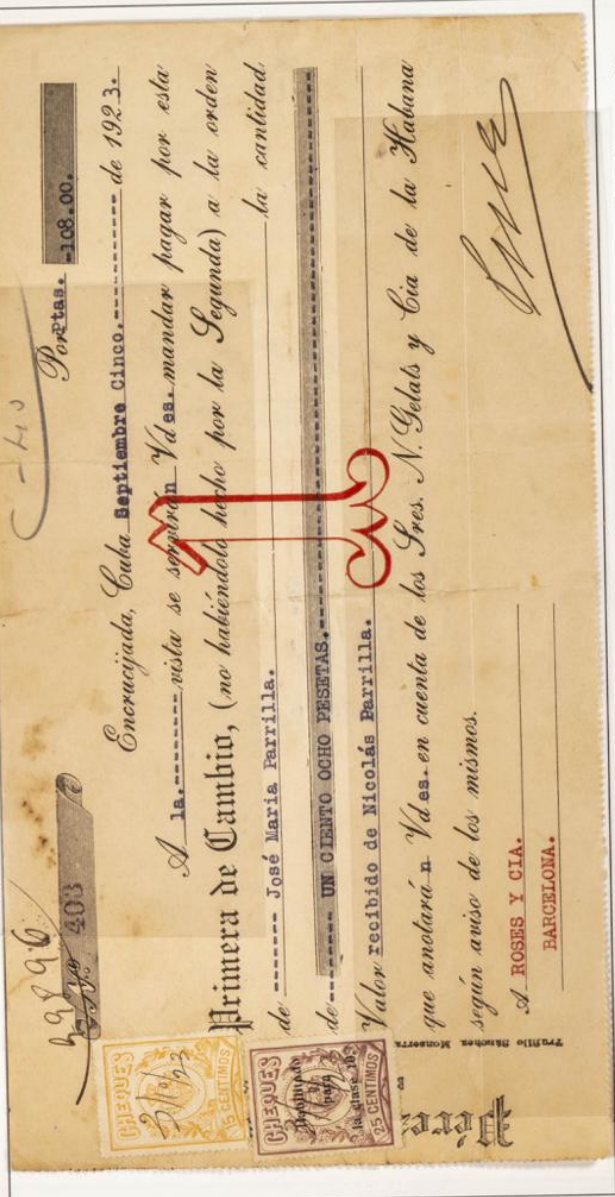 39896
403
Por Ptas. -108.00.
Encrucijada, Cuba Septiembre Cinco.---------- de 1923.
A la.---------vista se servirán Vd es. mandar pagar por esta
Primera de Cambio, (no habiéndolo hecho por la Segunda) a la orden
de ------- José Maria Parrilla. la cantidad
de-------- UN CIENTO OCHO PESETAS.
Valor recibido de Nicolás Parrilla.
que anotará n Vd es. en cuenta de los Sres. N. Gelats y Cia de la Habana
según aviso de los mismos.
A ROSES Y CIA.
BARCELONA.
CHEQUES
15 CENTIMOS
CHEQUES
Habilitado
para
la clase 10ª
25 CENTIMOS
Trujillo Sánchez Monserra
Pére